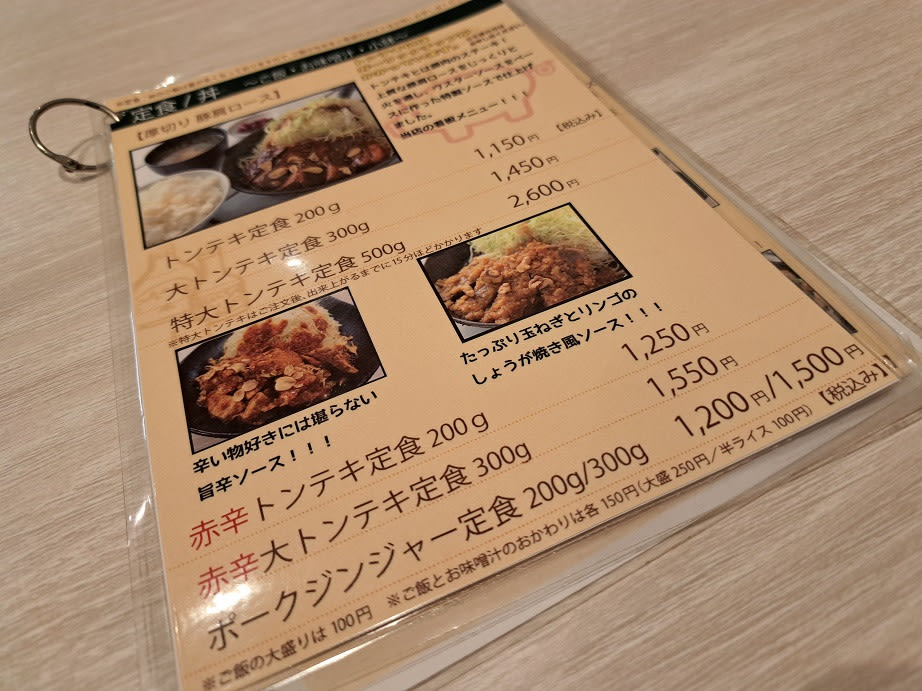 定食/丼 ～ご飯・お味噌汁・小鉢～
【厚切り 豚肩ロース】
トンテキとは豚肉のステーキ！
上質な豚肩ロースをじっくりと
火を通し、ウスターソースをベー
スに作った特製ソースで仕上げ
ました。
当店の看板メニュー！！！
【税込み】
トンテキ定食 200g 1,150円
大トンテキ定食 300g 1,450円
特大トンテキ定食 500g 2,600円
※特大トンテキはご注文後、出来上がるまでに15分ほどかかります
たっぷり玉ねぎとリンゴの
しょうが焼き風ソース！！！
辛い物好きには堪らない
旨辛ソース！！！
赤辛トンテキ定食 200g 1,250円
赤辛大トンテキ定食 300g 1,550円
ポークジンジャー定食 200g/300g 1,200円/1,500円
【税込み】
※ご飯の大盛りは100円 ※ご飯とお味噌汁のおかわりは各150円（大盛250円/半ライス100円）